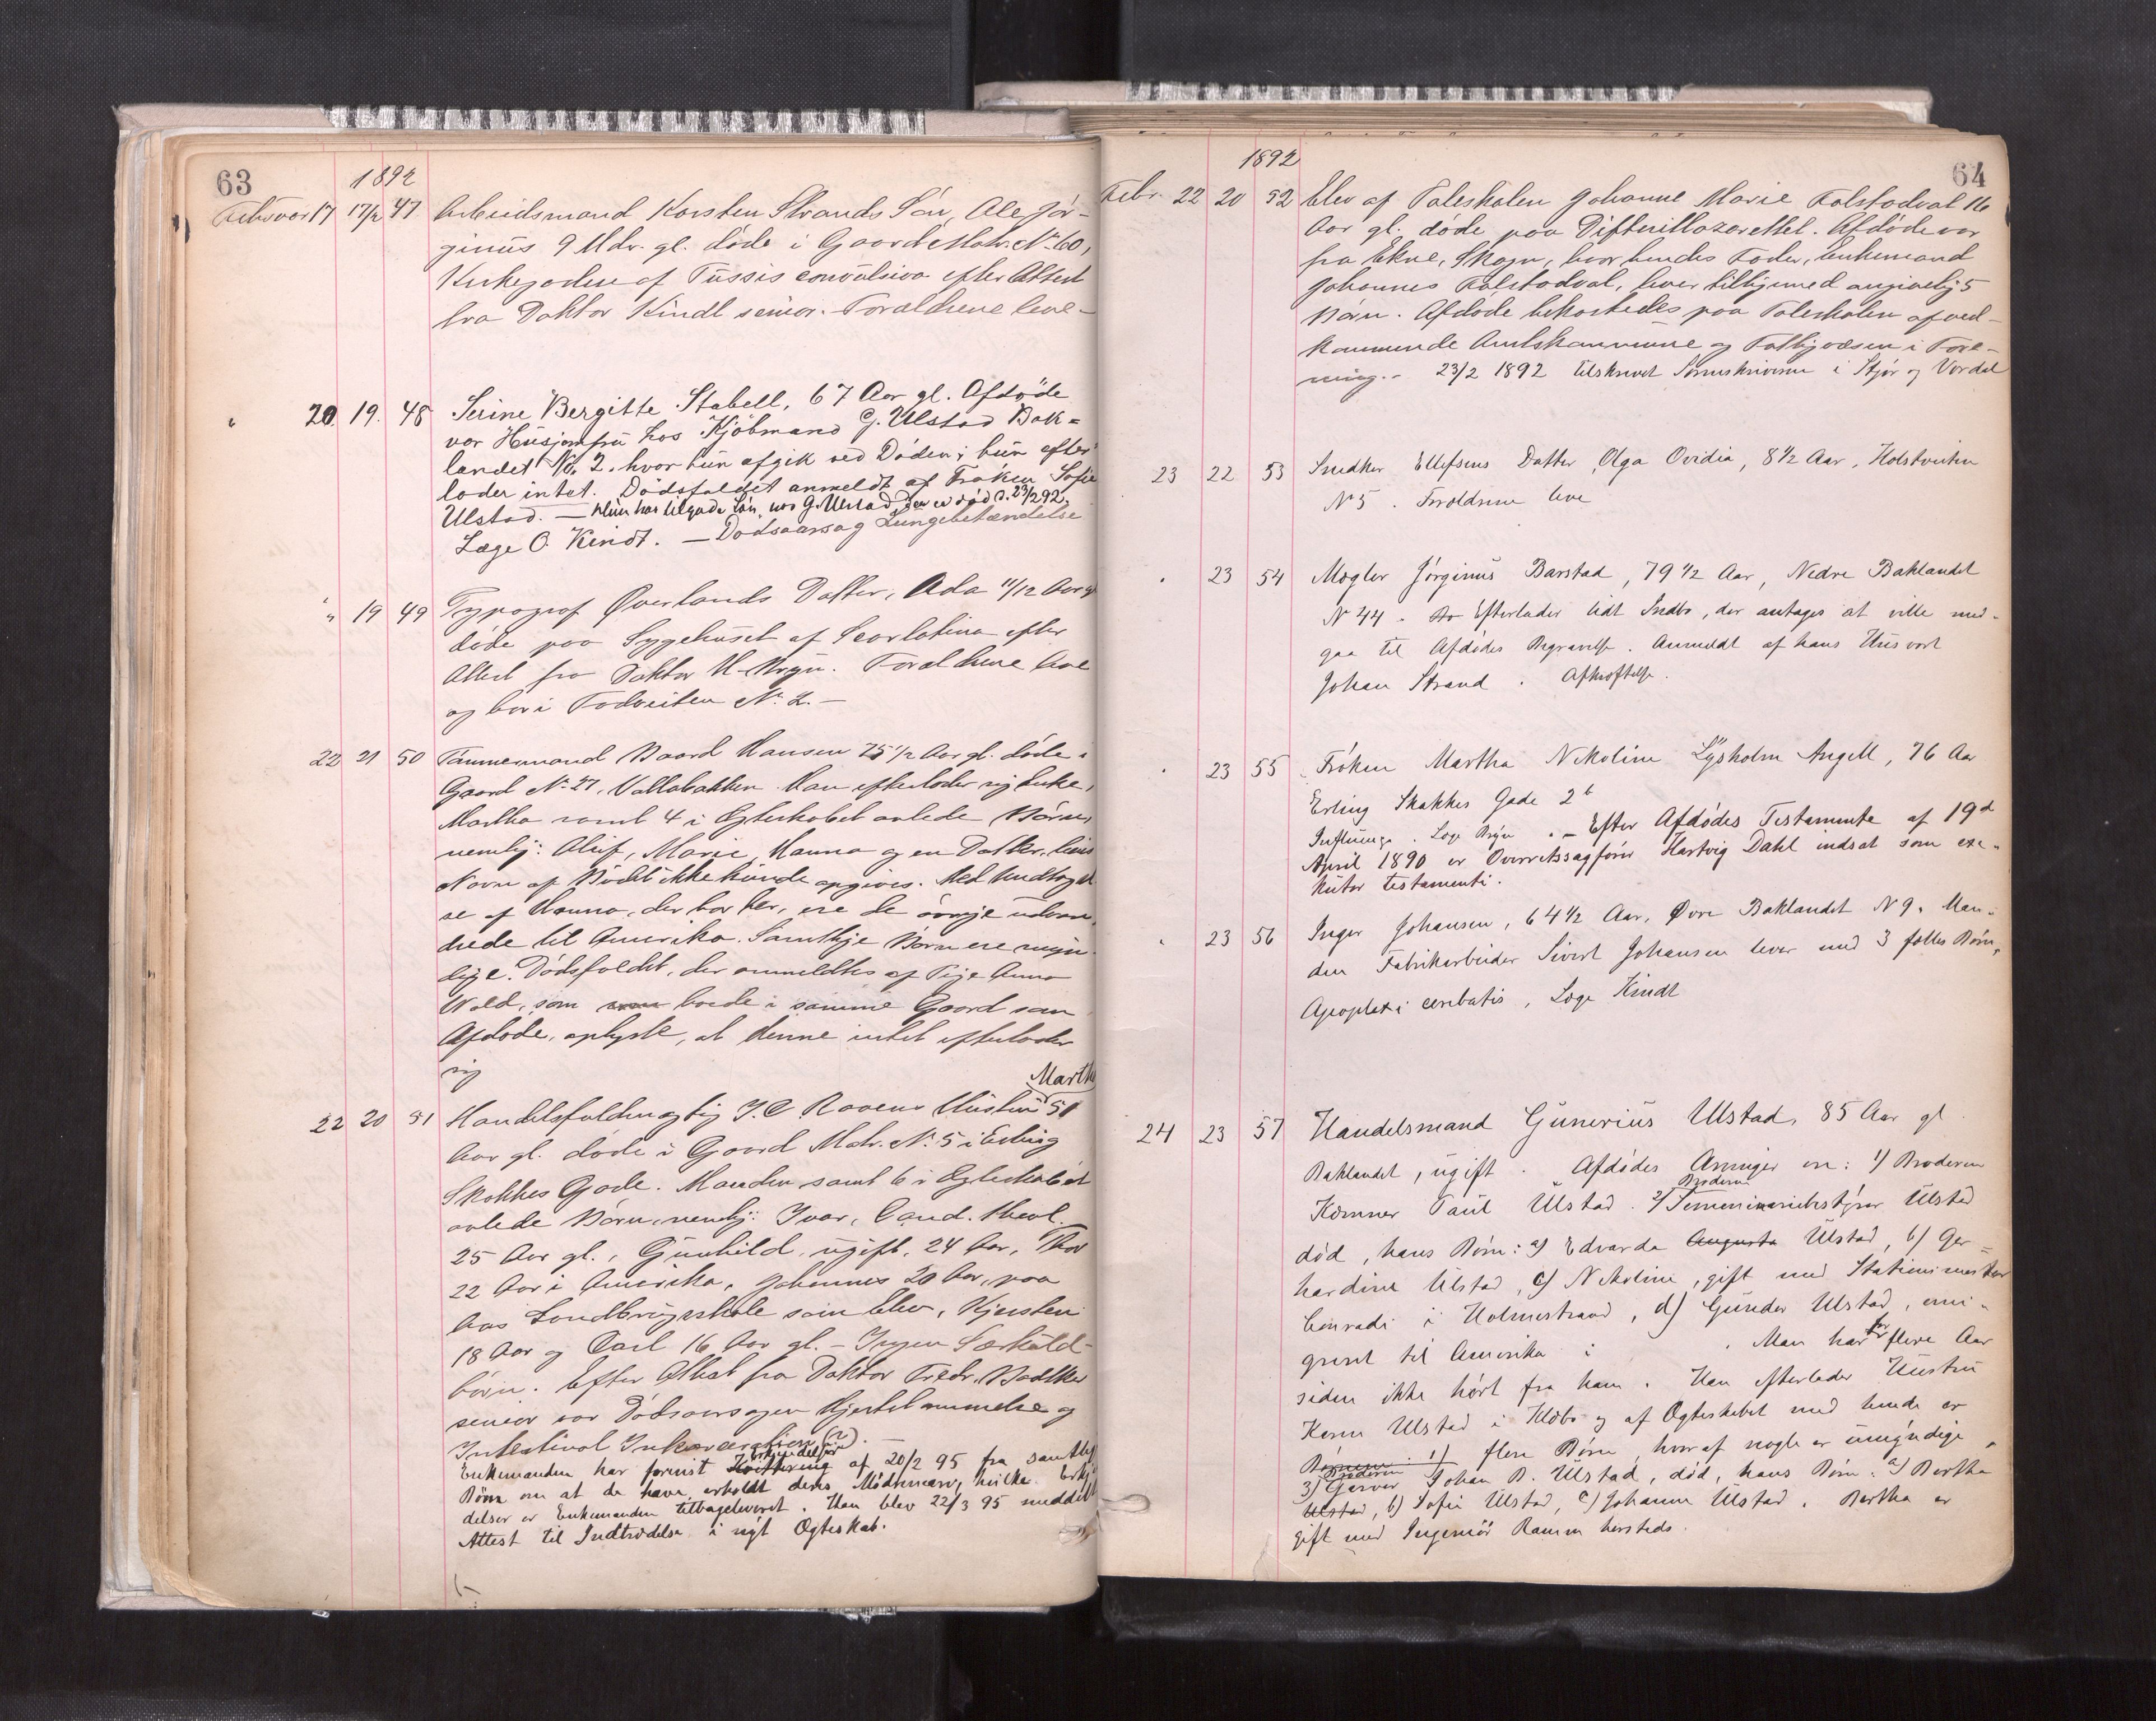 63
1892
Februar 17 17/2 47 Arbeidsmand Karsten Strands Søn, Ole Jør-
ginius 9 Mdr. gl. døde i Gaard Matr. No 60,
Kirkegaden af Tussis convulsiva efter Attest
fra Doktor Kindt senior. Forældrene leve –
" 20. 19. 48 Serine Bergitte Stabell, 67 Aar gl. Afdöde
var Husjomfru hos Kjöbmand G. Ulstad Bak=
landet No. 2. hvor hun afgik ved Döden; hun efter
lader intet. Dödsfaldet anmeldt af Fröken Sofie
Ulstad. — Hun har tilgode Løn hos G. Ulstad, der er død d. 23/2 92.
Læge O. Kindt. — Dødsaarsag Lungebetændelse
" " 19 49 Typograf Øverlands Datter, Ada 11/12 Aar gl
døde paa Sygehuset af Scarlatina efter
Attest fra Doktor Bryn. Forældrene leve
og bor i No. 2. –
22 21 50 Tømmermand Baard Hansen 75 1/2 Aar gl. døde i
Gaard No 27, Vollabakken. Han efterlader sig Enke,
Martha samt 4 i Egteskabet avlede Børn,
nemlig: Oluf, Marie, Hanna og en Datter, hvis
Navn af Budet ikke kunde opgives. Med Undtagel
se af Hanna, der bor her, ere de øvrige udvan
drede til Amerika. Samtlige Børn ere myn-
dige. Dødsfaldet, der anmeldtes af Pige Anna
Wold, som boede i samme Gaard som
Afdøde, oplyste, at denne intet efterlader
sig
Martha
22 20 51 Handelsfuldmægtig J. C. Ravens Hustru 51
Aar gl. døde i Gaard Matr. No. 5 i Erling
Skakkes Gade. Manden samt 6 i Egteskabet
avlede Børn, nemlig: Ivar, Cand. theol.
25 Aar gl., Gunhild, ugift, 24 Aar, Thor
22 Aar i Amerika, Johannes 20 Aar, paa
Aas Landbrugsskole som Elev, Kjersten
18 Aar og Carl 16 Aar gl. – Ingen Særkuld-
børn. Efter Attest fra Doktor Fredr. Bødtker
senior var Dødsaarsagen Hjertelammelse og
Intestinal (?).
Enkemanden har forevist Kvittering af 20/2 95 fra samtlige
Börn om at de have erholdt deres Mødrenearv, hvilke
delser er Enkemanden tilbageleveret. Han blev 22/3 95 meddelt
Attest til Indtrædelse i nyt Ægteskab.
64
1892
Febr. 22 20 52 Elev af Taleskolen Johanne Marie Falstadval 16
Aar gl. døde paa Difterillazarettet. Afdøde var
fra Ekne, Skogn, hvor hendes Fader, Enkemand
Johannes Falstadval, lever tilligemed angivelig 5
Børn. Afdøde bekostedes paa Taleskolen af ved-
kommende Amtskommune og Fattigvæsen i Fore-
ning. – 23/2 1892 tilskrevet Sorenskriveren i Stjør og Værdal
23 22 53 Snedker Ellefsens Datter Olga Ovidia, 8 1/2 Aar, Holstveiten
No 5. Forældrene leve
" 23 54 Mægler Jørginus Barstad, 79 1/2 Aar, Nedre Baklandet
No 44. Efterlader lidt Indbo, der antages at ville med-
gaa til Afdødes Begravelse. Anmeldt af hans Husvært
Johan Strand. Afkræftelse.
" 23 55 Frøken Martha Nikoline Lysholm Angell, 76 Aar
Erling Skakkes Gade 2b
Influenza. Læge Bryn. – Efter Afdødes Testamente af 19d
April 1890 er Overretssagfører Hartvig Dahl indsat som exe-
kutor testamenti.
" 23 56 Inger Johansen, 64 1/2 Aar, Øvre Baklandet No 9. Man-
den Fabrikarbeider Sivert Johansen lever med 3 fælles Børn,
Apoplexi cerebralis, Læge Kindt
24 23 57 Handelsmand Gunerius Ulstad, 85 Aar gl
Baklandet, ugift. Afdødes Arvinger ere: 1) Broderen
Kæmner Paul Ulstad. 2) Broderen Seminariebestyrer Ulstad
død, hans Börn: a) Edvarda Augusta Ulstad, b) Ger=
hardine Ulstad, c) Nikoline, gift med Stationsmester
Conradi i Holmestrand, d) Gunder Ulstad, emi-
greret til Amerika i . Man har for flere Aar
siden ikke hørt fra ham. Han efterlader Hustru
Karen Ulstad i Klæbo og af Ægteskabet med hende er
flere Børn, hvoraf nogle er umyndige,
3) Broderen Garver Johan B. Ulstad, död, hans Børn: a) Berthe
Ulstad, b) Sofie Ulstad, c) Johanne Ulstad. Berthe er
gift med Ingeniör Ramm hersteds.